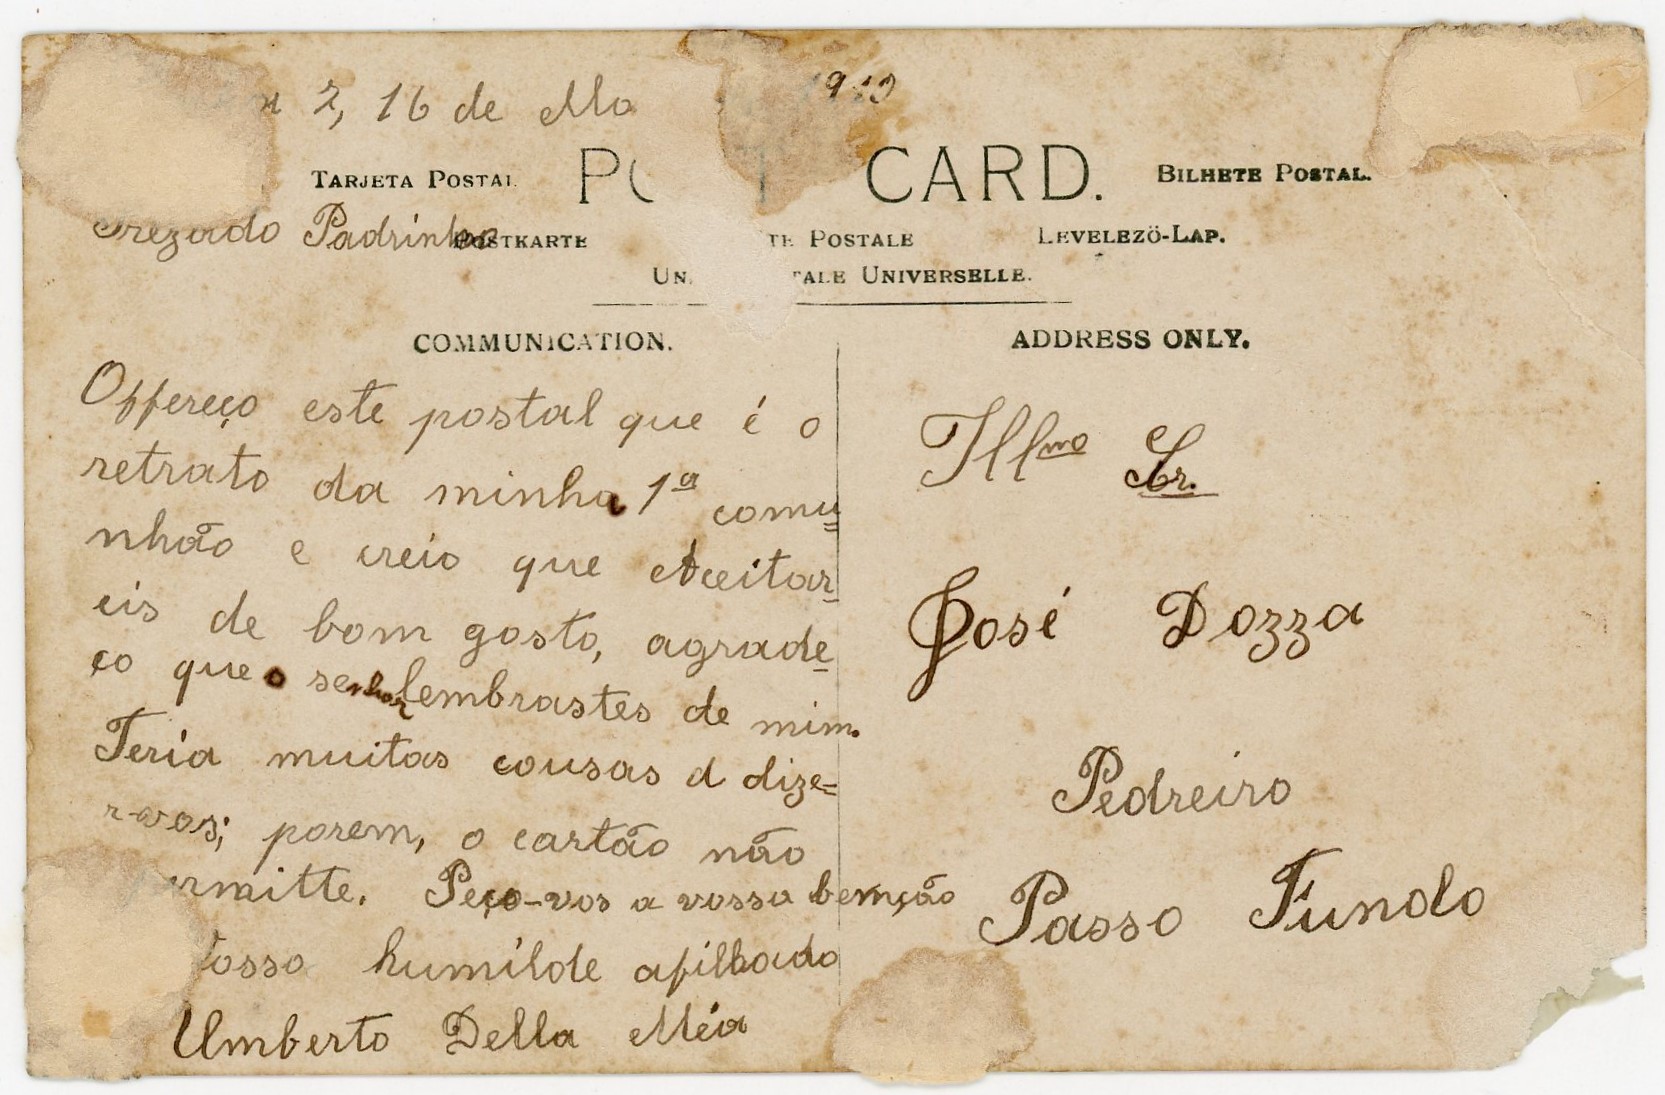 2, 16 de
TARJETA POSTAL
CARD.
BILHETE POSTAL.
Prezado Padrinho
POSTKARTE
POSTALE
LEVELEZÖ-LAP.
UNIVERSELLE.
COMMUNICATION.
ADDRESS ONLY.
Offereço este postal que é o
retrato da minha 1ª comu=
nhão e creio que aceitar-
eis de bom gosto, agrade-
ço que o senhor lembrastes de mim.
Teria muitas cousas a dize=
r-vos; porem, o cartão não
permitte. Peço-vos a vossa bemção
Vosso humilde afilhado
Umberto Della Méa
Illmo Sr.
José Dozza
Pedreiro
Passo Fundo